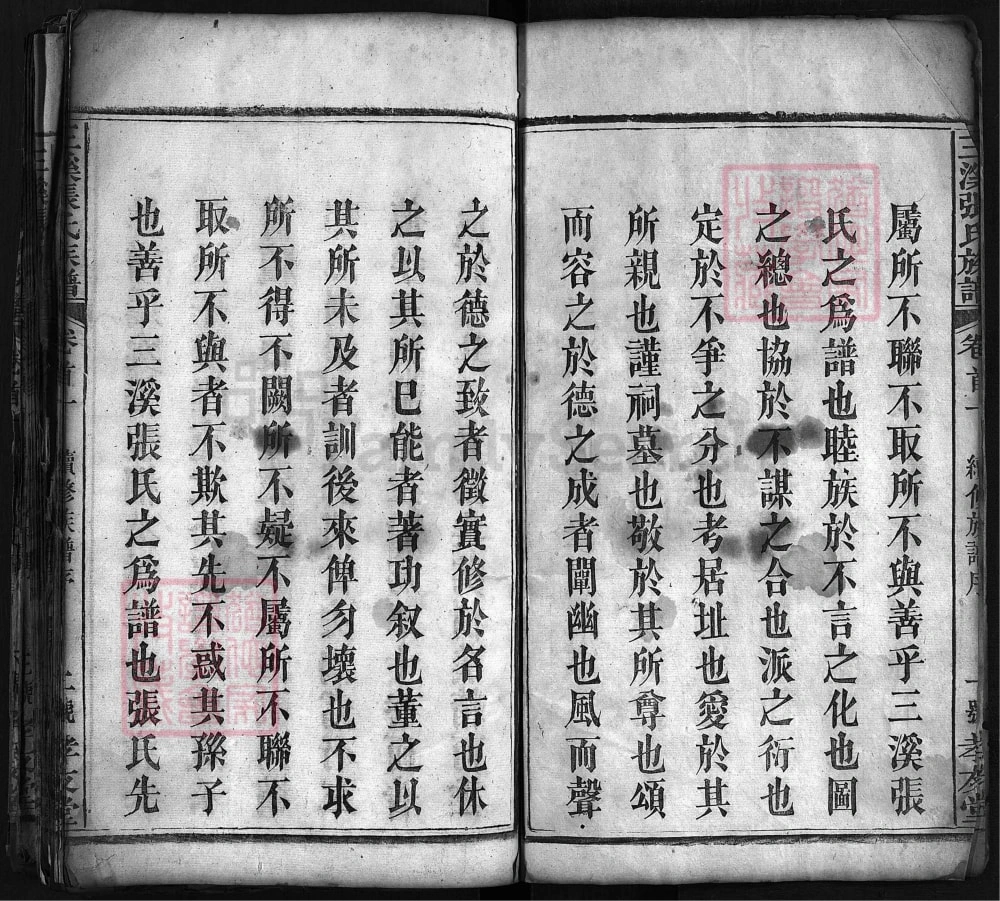 三溪張氏族譜 卷首一 續修族譜序 一號 孝友堂
屬所不聯不取所不與善乎三溪張
氏之爲譜也睦族於不言之化也圖
之總也協於不謀之合也派之衍也
定於不爭之分也考居址也愛於其
所親也謹祠墓也敬於其所尊也頌
而容之於德之成者闡幽也風而聲
之於德之致者徵實修於名言也休
之以其所已能者著功叙也董之以
其所未及者訓後來俾勿壞也不求
所不得不闕所不疑不屬所不聯不
取所不與者不欺其先不惑其孫子
也善乎三溪張氏之爲譜也張氏先
三溪張氏族譜 卷首一 續修族譜序 孝友堂
FamilySearch